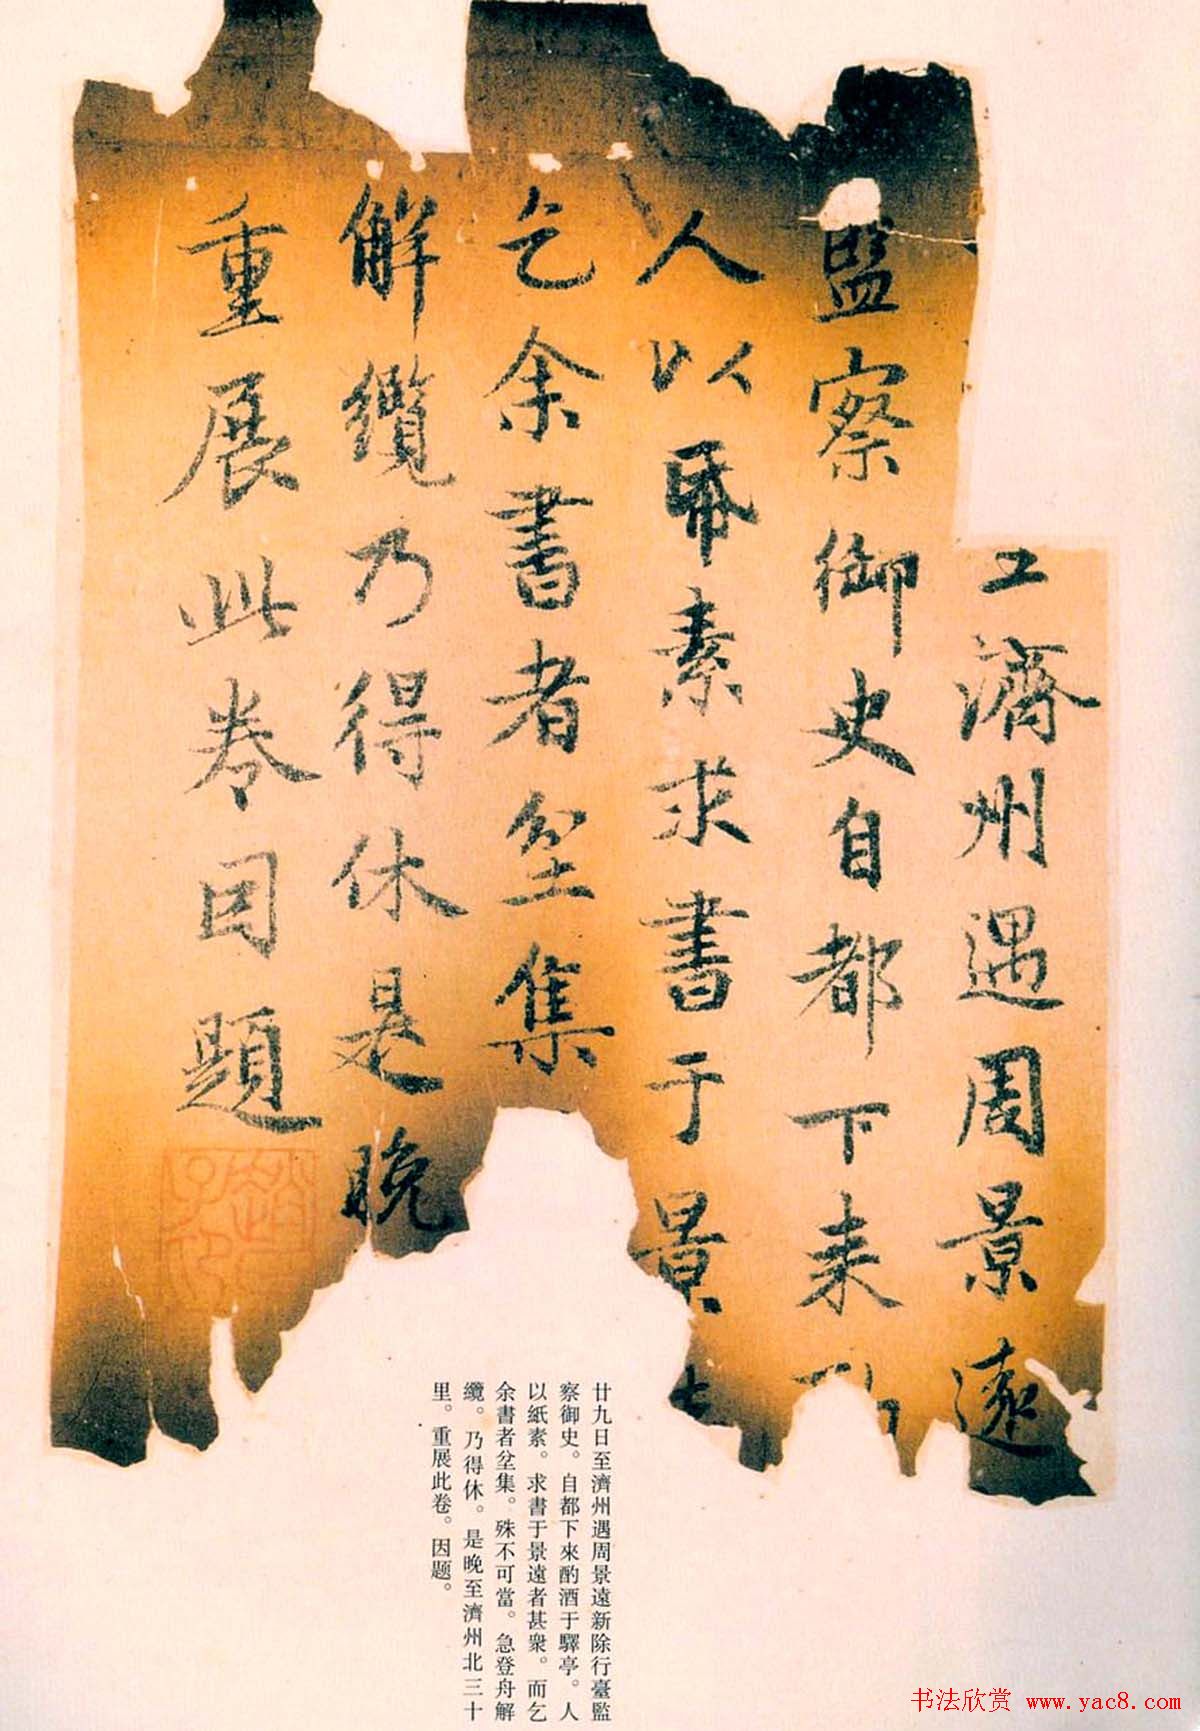 至濟州遇周景遠
監察御史自都下来酌
人以帋素求書于景
乞余書者坌集
解纜乃得休是晚
重展此卷因題
廿九日至濟州遇周景遠新除行臺監
察御史。自都下來酌酒于驛亭。人
以紙素。求書于景遠者甚衆。而乞
余書者坌集。殊不可當。急登舟解
纜。乃得休。是晚至濟州北三十
里。重展此卷。因题。
书法欣赏 www.yac8.com